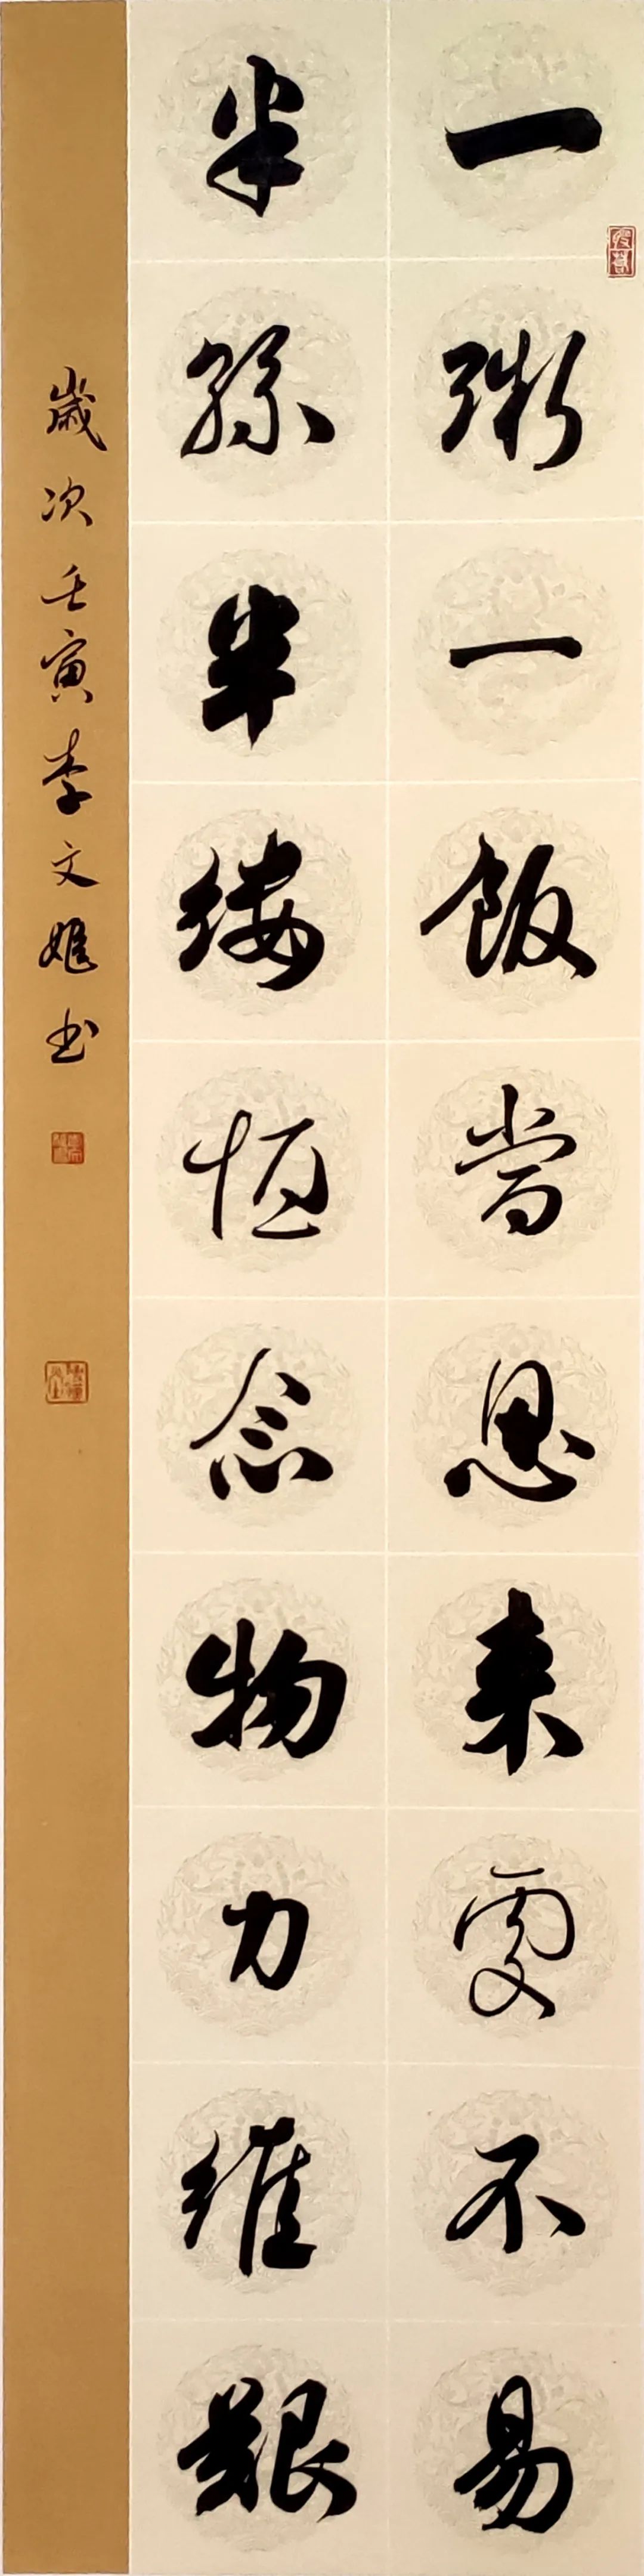 一粥一飯當思来處不易
半絲半縷恒念物力維艱
歲次壬寅李文姬书